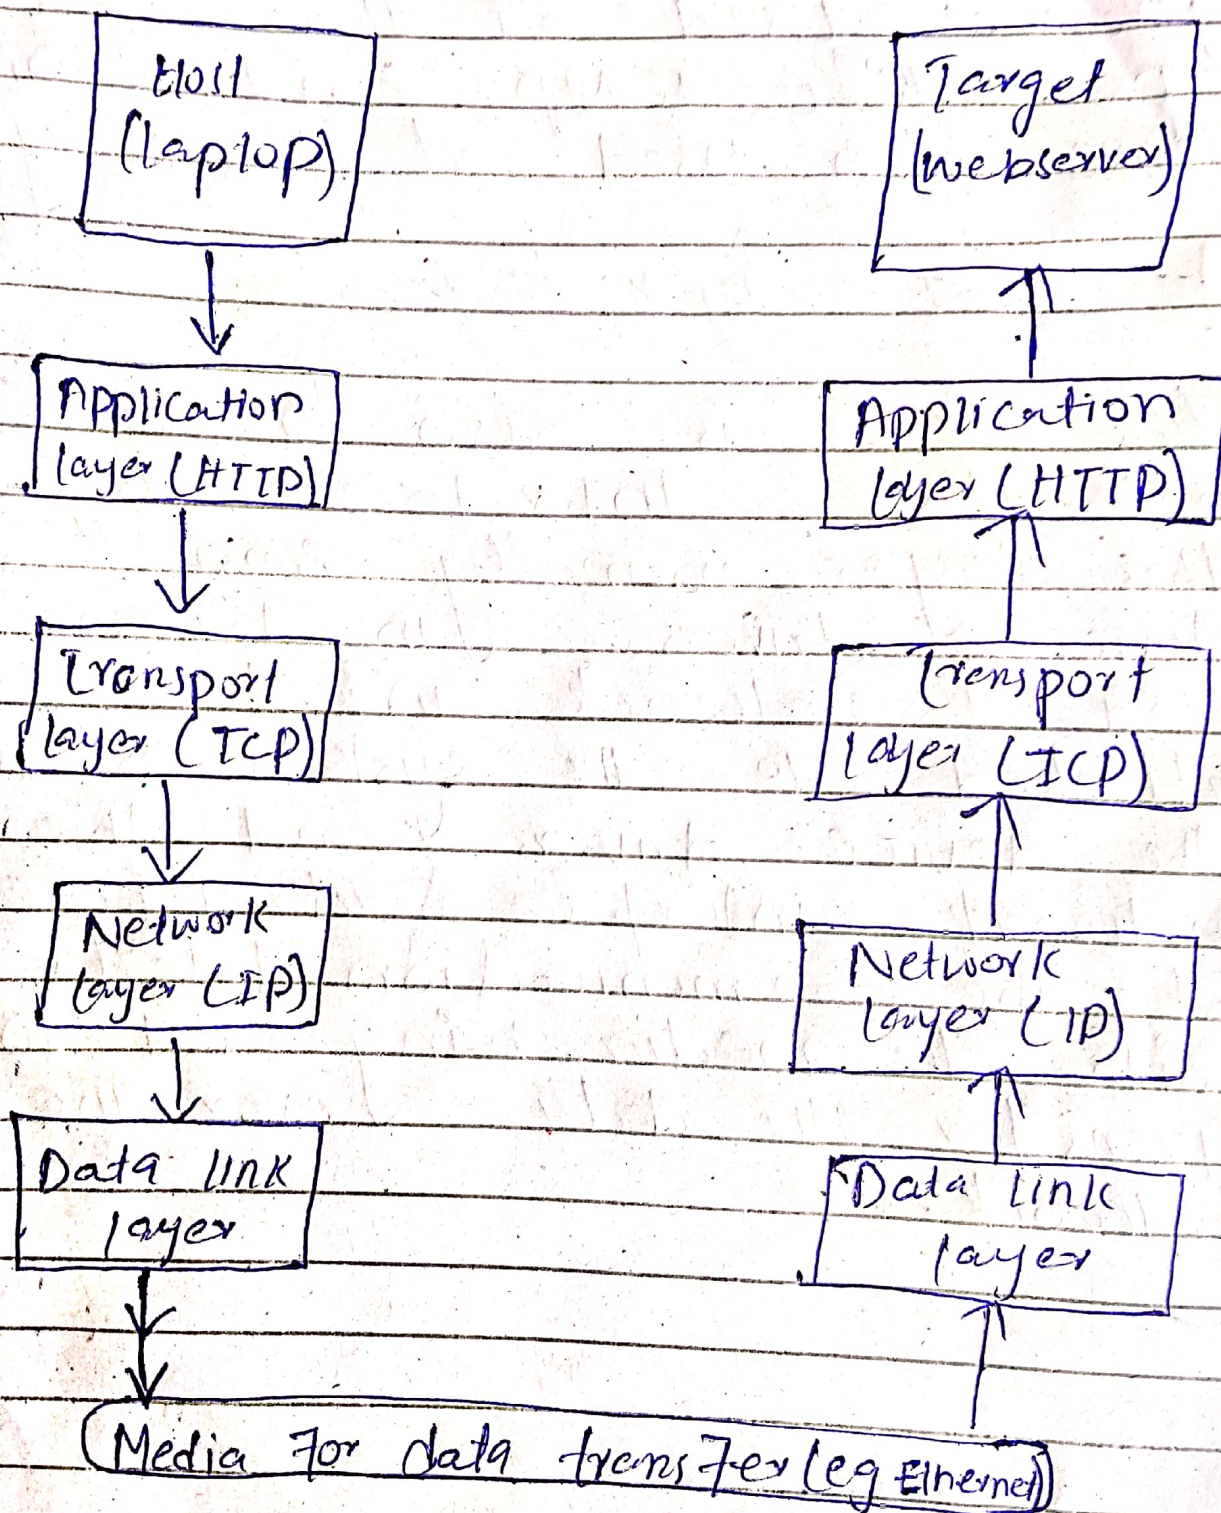 Host
(laptop)
Application
layer (HTTP)
Transport
layer (TCP)
Network
layer (IP)
Data link
layer
Target
(webserver)
Application
layer (HTTP)
transport
layer (TCP)
Network
layer (IP)
Data link
layer
Media for data transfer (eg Ethernet)